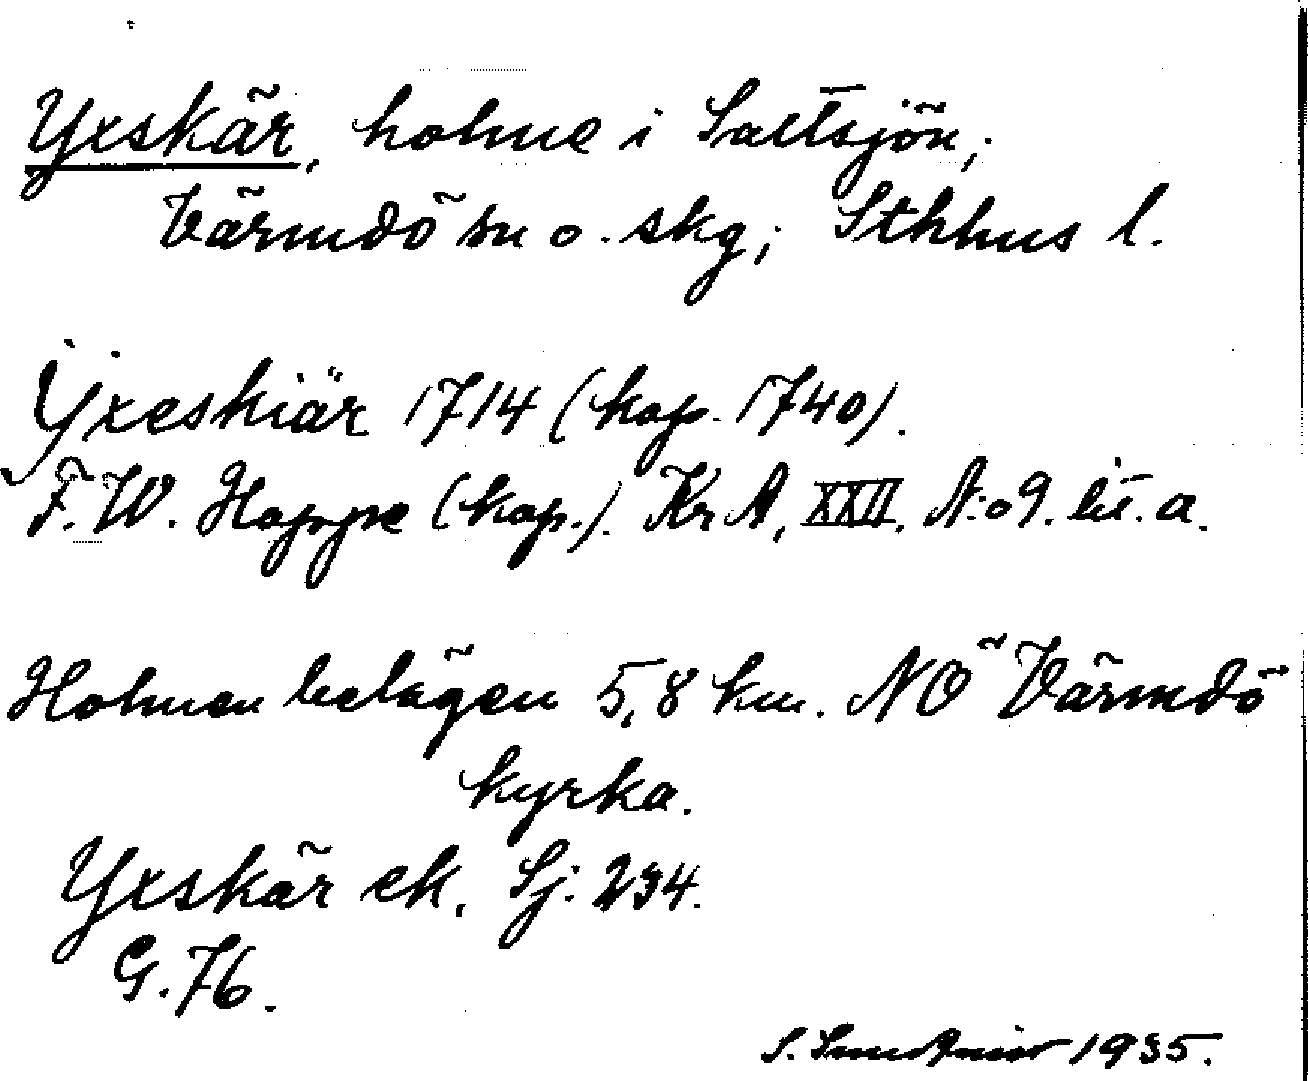 Yxskär, holme i Saltsjön,
Värmdö sn o. skg; Sthlms l.
Ÿxeskiär 1714 (kop. 1740).
F.W. Hoppe (kop.). KrA, XXII. N:o 9. lit. a.
Holmen belägen 5,8 km. NÖ Värmdö
kyrka.
Yxskär ek. Sj. 234.
G. 76.
S. 1935.